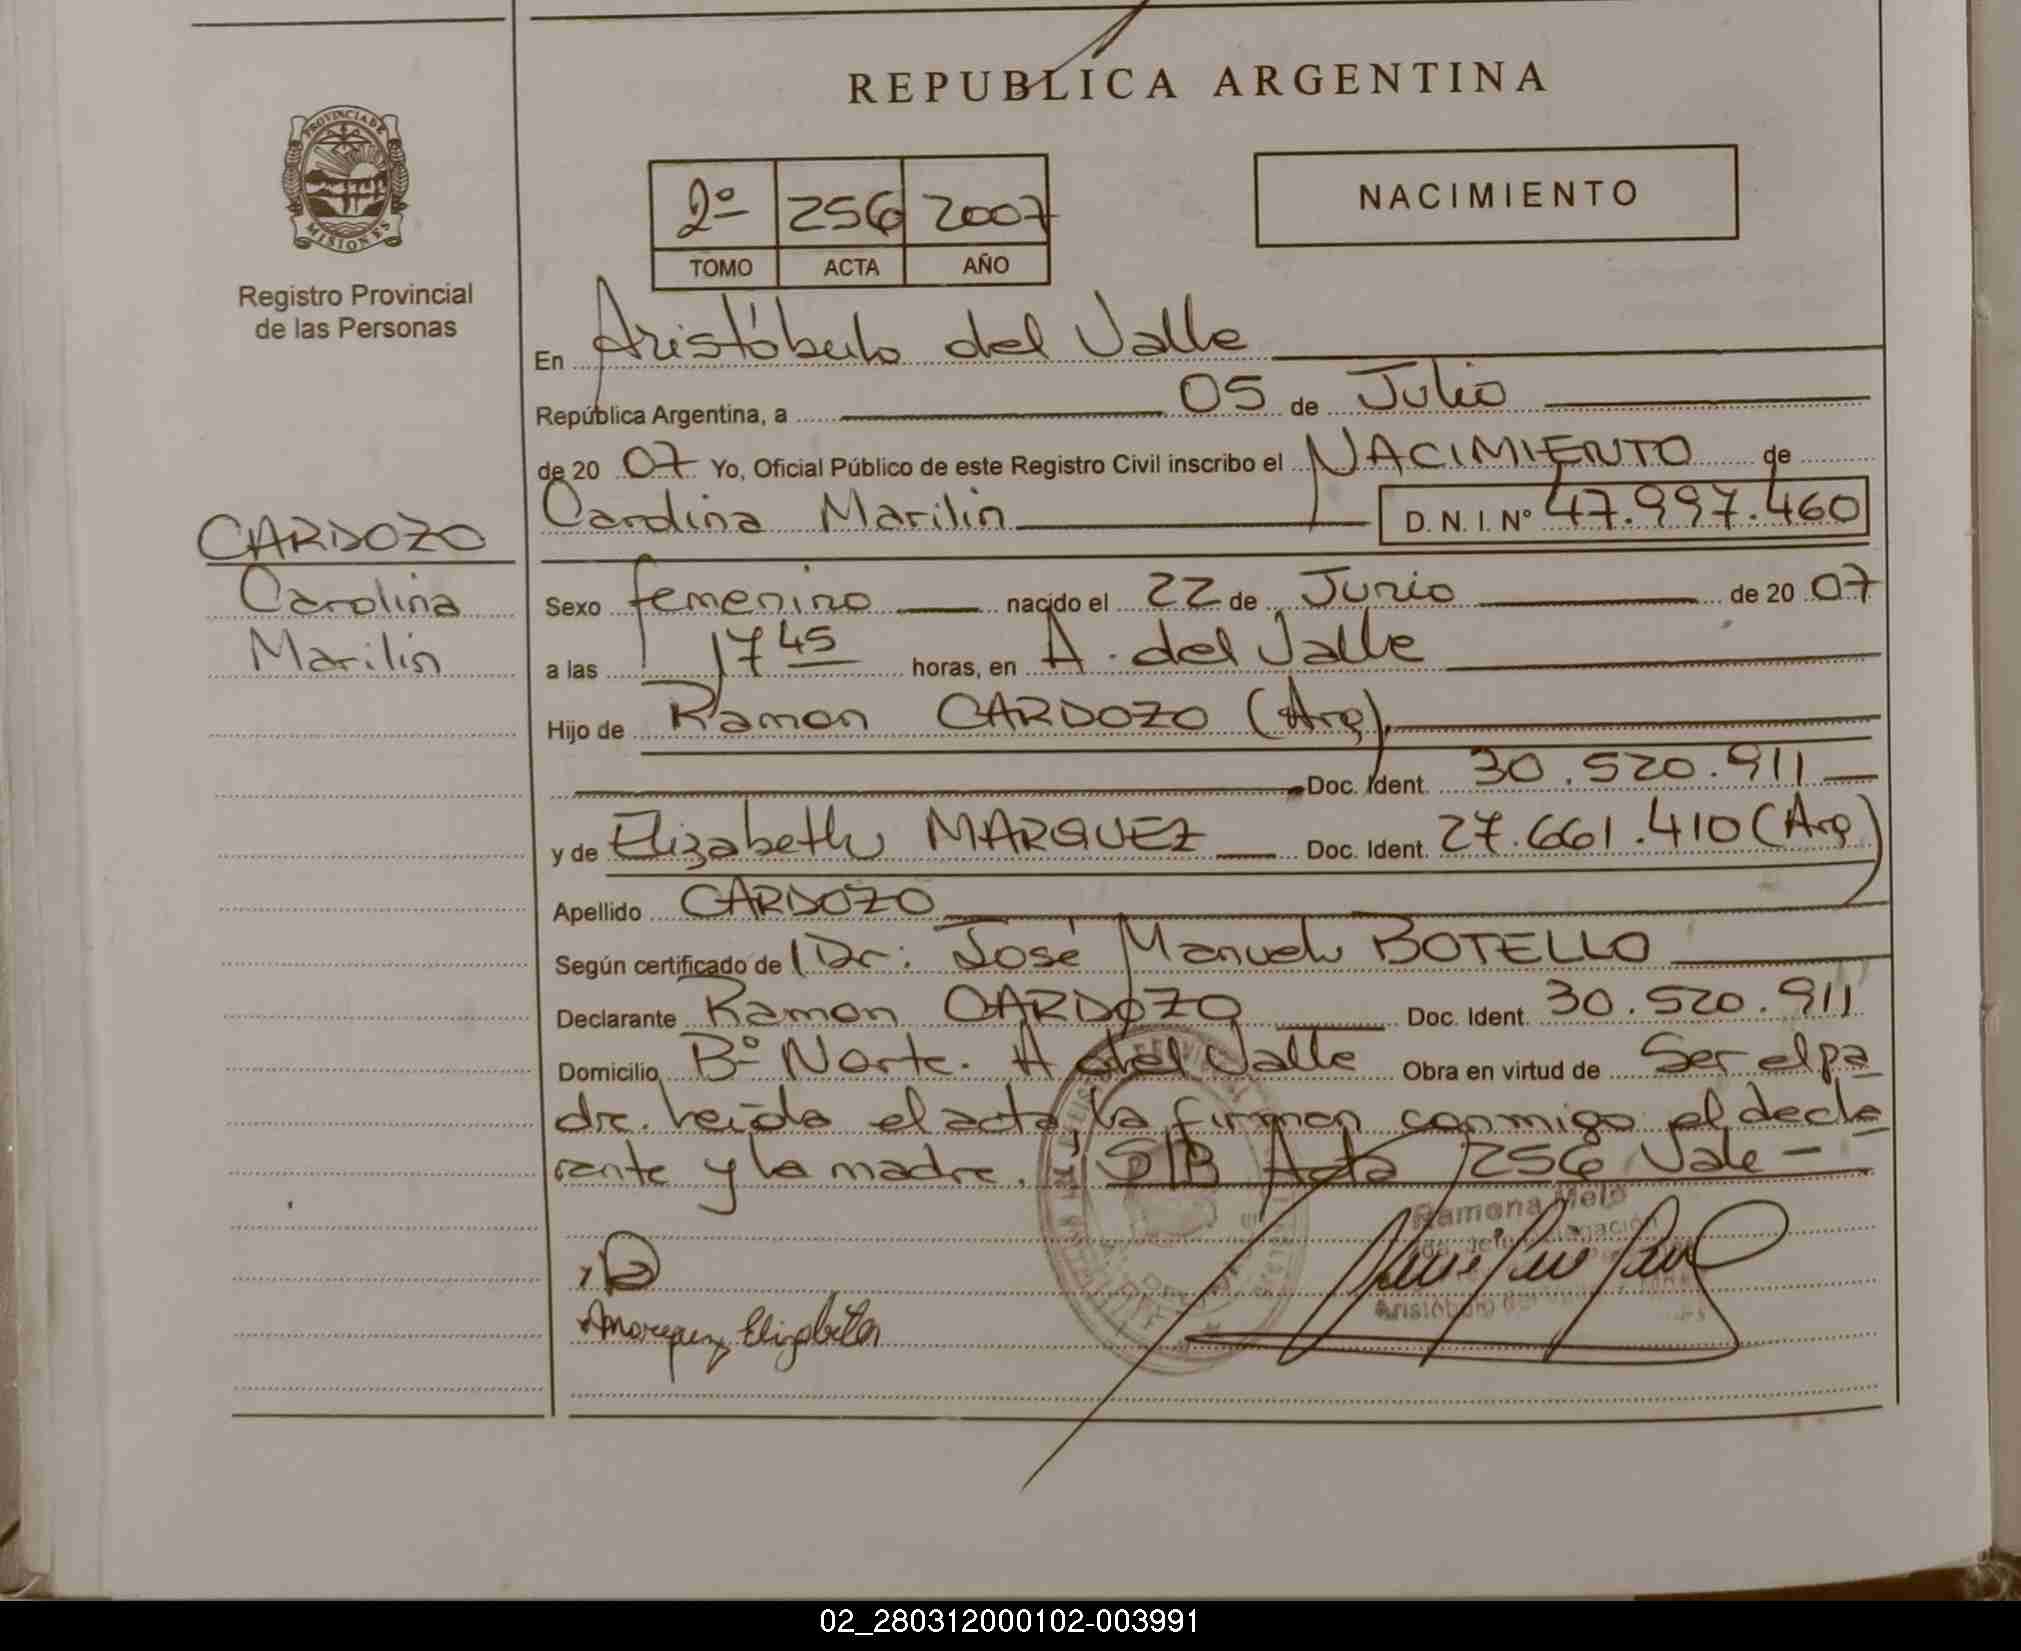 REPUBLICA ARGENTINA
PROVINCIA DE
MISIONES
Registro Provincial
de las Personas
2º 256 2007
TOMO ACTA AÑO
NACIMIENTO
En Aristóbulo del Valle
República Argentina, a 05 de Julio
de 20 07 Yo, Oficial Público de este Registro Civil inscribo el NACIMIENTO de
Carolina Marilin D. N. I. Nº 47.997.460
CARDOZO
Carolina
Marilin
Sexo femenino nacido el 22 de Junio de 20 07
a las 17 45 horas, en A. del Valle
Hijo de Ramon CARDOZO (Arg),
Doc. Ident. 30.520.911
y de Elizabeth MARQUEZ Doc. Ident. 27.661.410 (Arg)
Apellido CARDOZO
Según certificado de Dr: José Manuel BOTELLO
Declarante Ramon CARDOZO Doc. Ident. 30.520.911
Domicilio Bº Norte. A del Valle Obra en virtud de Ser el pa
dre. leída el acta, la firman conmigo el decla
rante y la madre. S/B Acta 256 Vale -
Ramona Melo
Aristóbulo del Valle
Marquez Elizabeth
02_280312000102-003991